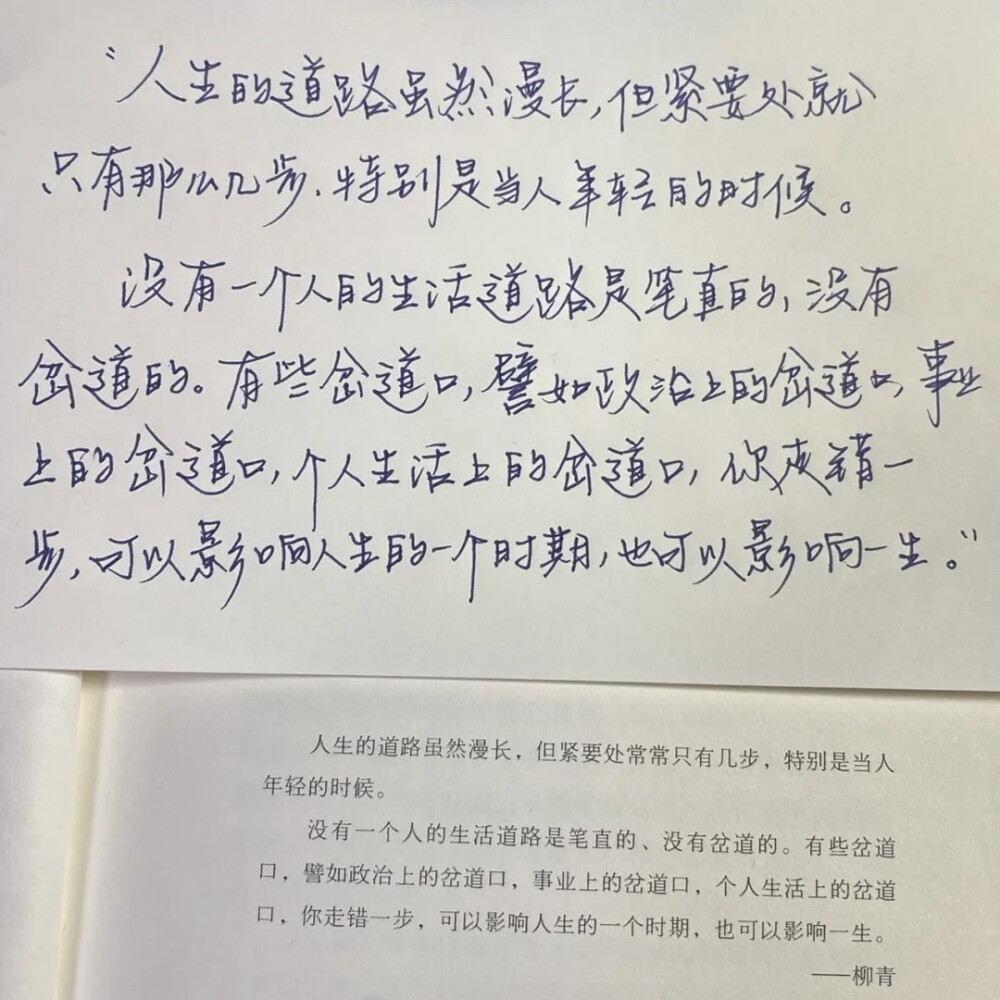 “人生的道路虽然漫长,但紧要处就
只有那么几步.特别是当人年轻的时候。
没有一个人的生活道路是笔直的,没有
岔道的。有些岔道口,譬如政治上的岔道口,事业
上的岔道口,个人生活上的岔道口,你走错一
步,可以影响人生的一个时期,也可以影响一生。”
人生的道路虽然漫长，但紧要处常常只有几步，特别是当人
年轻的时候。
没有一个人的生活道路是笔直的、没有岔道的。有些岔道
口，譬如政治上的岔道口，事业上的岔道口，个人生活上的岔道
口，你走错一步，可以影响人生的一个时期，也可以影响一生。
——柳青